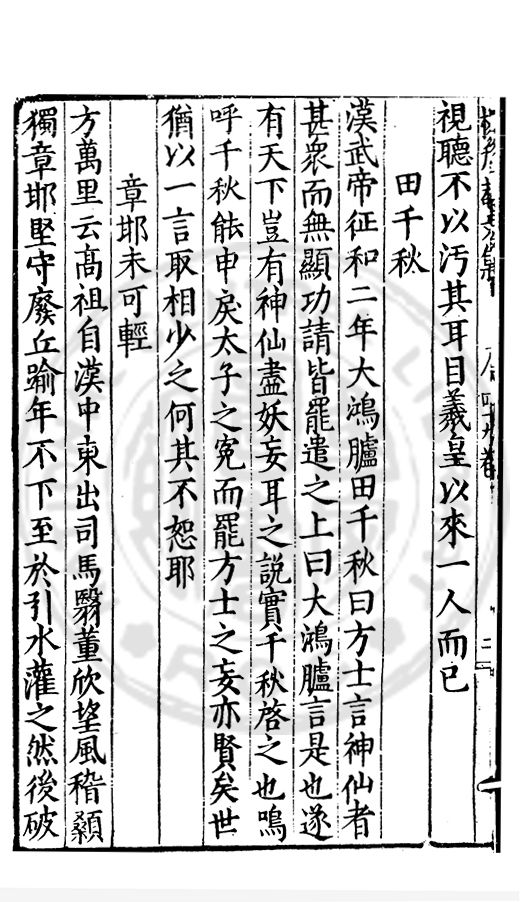 視聽不以汚其耳目羲皇以來一人而已
田千秋
漢武帝征和二年大鴻臚田千秋曰方士言神仙者
甚衆而無顯功請皆罷遣之上曰大鴻臚言是也遂
有天下豈有神仙盡妖妄耳之說實千秋啓之也嗚
呼千秋能申戾太子之寃而罷方士之妄亦賢矣世
猶以一言取相少之何其不恕耶
章邯未可輕
方萬里云高祖自漢中東出司馬翳董欣望風稽顙
獨章邯堅守廢丘踰年不下至於引水灌之然後破